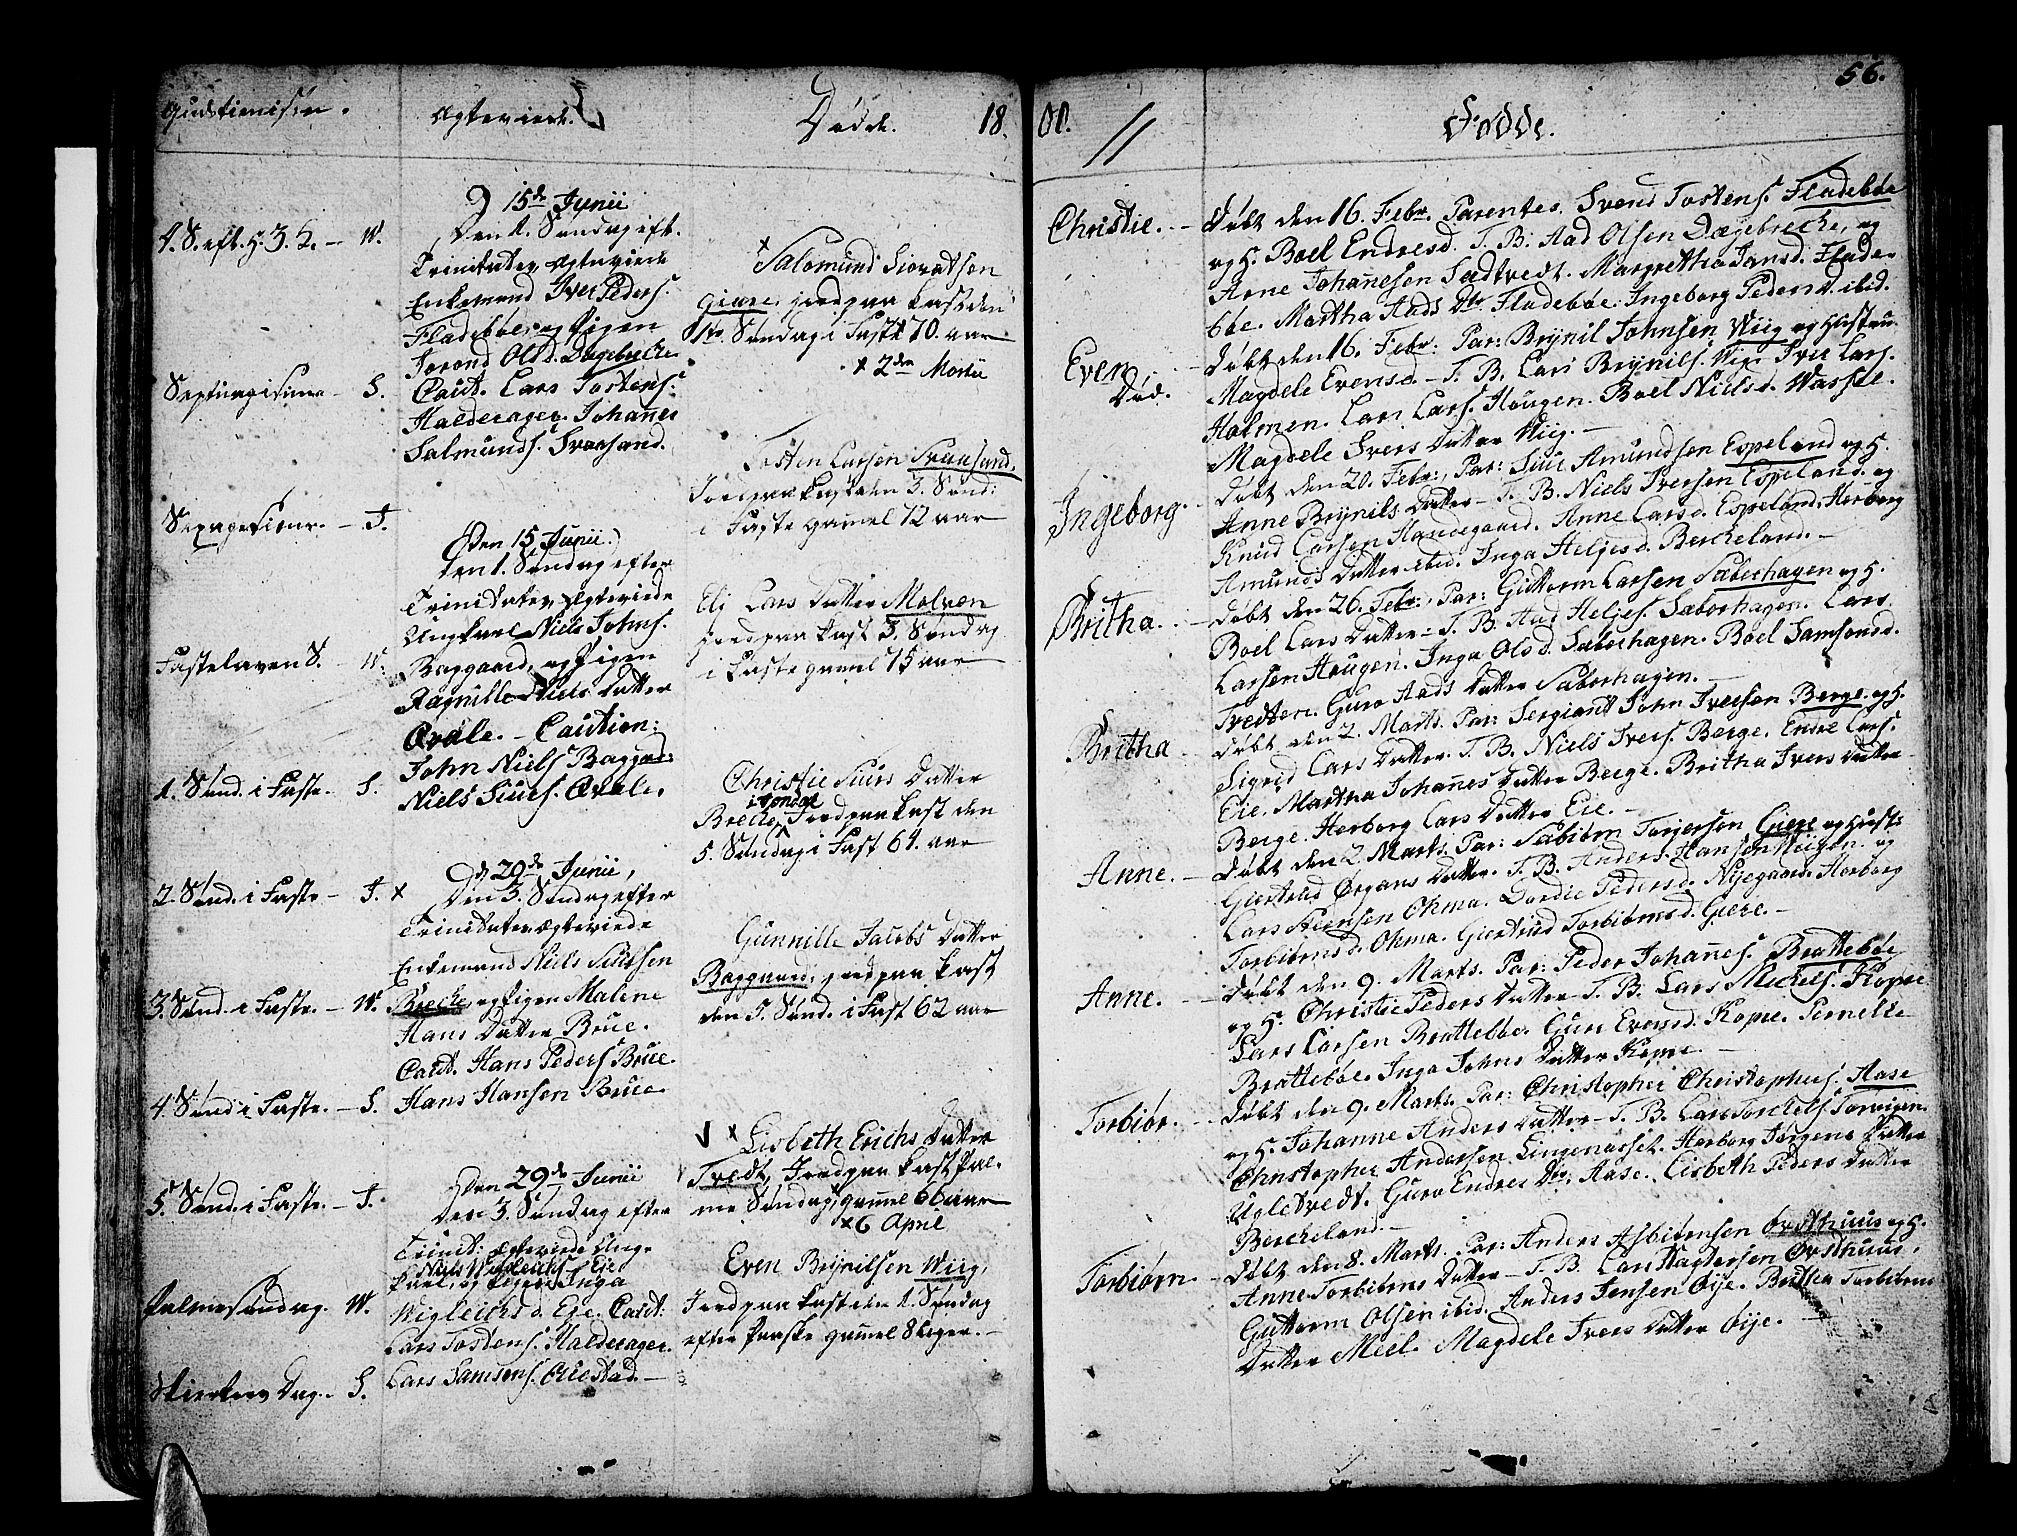 Gudstienisten.
Ægteviede.
Døde.
18
00.
11
Fødde.
56.
4. S. eft. H. 3. K. – W.
Septuagesima – S.
Sexagesima. – T.
Fastelavens S. – W.
1. Sønd. i Faste. – S.
2. Sønd. i Faste – T. x
3. Sønd. i Faste. – W.
4. Sønd. i Faste. – S.
5. Sønd. i Faste. – T.
Palmesøndag. – W.
Skiertors Dag. – S.
D 15de Junii
Den 1. Søndag eft.
Trinitates, Ægteviede
Enkemand Iver Peders.
Fladebøe, og Pigen
Jorond Olsd. Døgebreche
Caut. Lars Tostens.
Halderager. Johannes
Salmunds. Svaasand.
Den 15 Junii.
den 1. Søndag efter
Trinitates, Ægteviede
Ungkarl Niels Johns.
Baggaard, og Pigen
Ragnille Niels Datter
Qvale. – Caution:
John Niels. Baggaard:
Niels Siurs. Qvale.
D 29de Junii,
Den 3. Søndag efter
Trinitates Ægteviede
Enkemand Niels Siursen
Breche og Pigen Malene
Hans Datter Bruce.
Caut. Hans Peders. Bruce.
Hans Hansen Bruce.
Den 29de Junii
Den 3. Søndag efter
Trinit: Ægteviede Ung-
Niels Wigleichs. Eie
karl, og Pigen Inga
Wigleichsd. Eie. Caut:
Lars Tostens. Halderager.
Lars Samsons. Qvestad. –
x
Salomund Siovatsen
Giære, jordpaakast den
1te Søndag i Fast 70 aar
x 2den Martii
Tosten Larsen Svaasand,
Jordpaakast den 3. Sønd:
i Faste gamel 72 aar
Eli Lars Datter Malven
jordpaakast 3. Søndag
i Faste gamel 75 aar
Christie Siurs Datter
i Jondal
Breche, Jordpaakast den
5. Søndag i Fast 64. aar
Gunnille Jacobs Datter
Baggaard, jordpaakast
den 5. Sønd. i Fast 62 aar
V x Lisbeth Erichs Datter
Tvedt, Jordpaakast Pal-
me Søndag, gamel 66 aar
x 6 April
Even Brynilsen Wiig,
Jordpaakast den 1. Søndag
efter Paaske gamel 8 Uger. –
Christie. – Døbt den 16. Febr. Parentes. Svend Tostens. Fladebøe
og H. Boel Endresd. T. B. Aad Olsen Døgebreche, og
Arne Johannesen Sædtvedt. Margretha Jansd. Flade-
bøe. Martha Aads Dtr. Fladebøe. Ingeborg Pedersd. ibid.
Even Død. Døbt den 16. Febr. Par: Brynil Johnsen Wiig og Hustru
Magdele Evensd. – T. B. Lars Brynils. Wiig. Iver Lars.
Holmen. Lars Lars. Hougen. Boel Nielsd. Wassel.
Magdele Ivers Datter Wiig. –
Ingeborg. Døbt den 20. Febr., Par: Siur Amundsen Espeland og H.
Anne Brynils Datter – T. B. Niels Iversen Espeland. og
Knud Larsen Handegaard. Anne Larsd. Espeland. Herborg
Amunds Datter ibid. Inga Heljesd. Bercheland. –
Britha. – Døbt den 26. Febr., Par: Guttorm Larsen Saberhagen og H.
Boel Lars Datter – T. B. Aad Heljes. Saberhagen. Lars
Larsen Hougen. Inga Olsd. Saberhagen. Boel Samsonsd.
Tvedten. Guro Aads Datter Saberhagen. –
Britha – Døbt den 2. Marts. Par: Sergiant John Iversen Berge. og H.
Sigrid Lars Datter. T. B. Niels Ivers. Berge. Endre Lars.
Eie. Martha Johannes Datter Berge. Britha Ivers Datter
Berge. Herborg Lars Datter Eie. –
Anne. – Døbt den 2. Marts. Par: Sabiørn Torgersen Giere og Hust:
Giertrud Ørjans Datter. T. B. Anders Hansen Wiigen. og
Lars Steensen Ohma. Dordie Pedersd. Nyegaard. Herborg
Torbiørnsd. Ohma. Giertrud Torbiørnsd. Giere. –
Anne. – Døbt den 9. Marts. Par: Peder Johannes. Brattebøe
og H. Christie Peders Datter – T. B. Lars Michels. Kopre
Lars Larsen Brattebøe. Guro Evensd. Kopre. Pernelle
Brattebøe. Inga Johns Datter Kopre. –
Torbiør. – Døbt den 9. Marts. Par: Christopher Christophers. Aase
og H. Johanne Anders Datter – T. B. Lars Torchels. Torvigen.
Christopher Andersen Lingenæsset. Herborg Jørgens Datter
Ugletvedt. Guro Endres Dtr. Aase. Lisbeth Peders Datter
Bercheland. –
Torbiørn. – Døbt den 8. Marts. Par: Anders Asbiørnsen Ørdthuus og H.
Anne Torbiørns Datter – T. B. Lars Hagtorsen Ørdthuus.
Guttorm Olsen ibid. Anders Jensen Øije. Britha Torbiørns
Datter Meel. Magdele Ivers Datter Øije. –